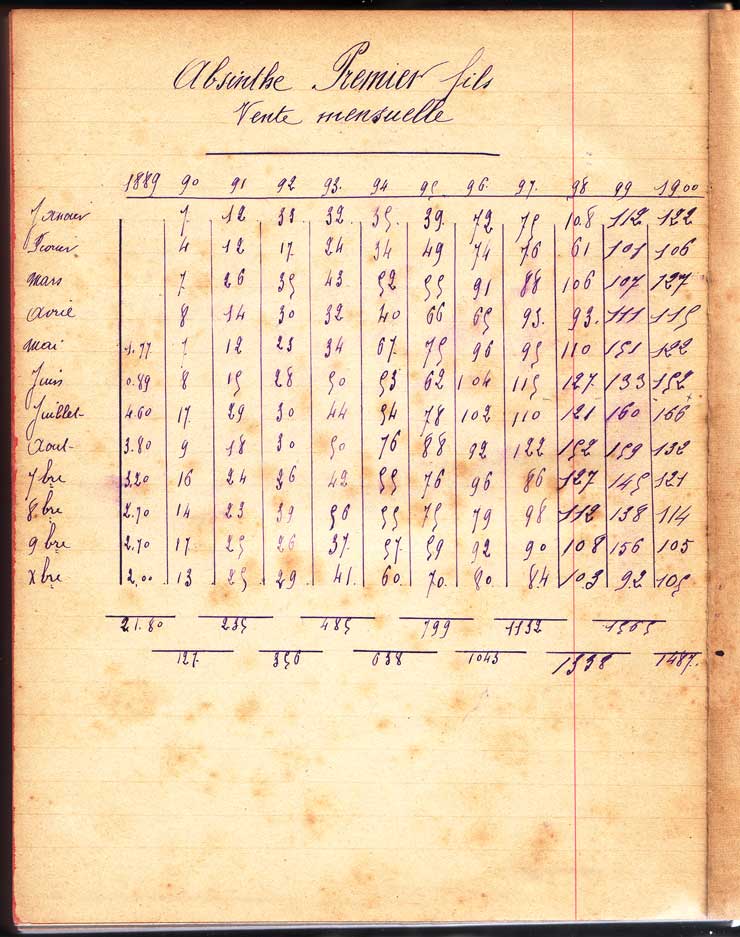 Absinthe Premier fils
Vente mensuelle
1889 90 91 92 93. 94 95 96. 97. 98 99 1900
Janvier 7. 12 33 32 35 39. 72 75 108 112 122
Fevrier 4 12 17. 24 34 49 74 76 61 101 106
Mars 7. 26 35 43. 52 55 91 88 106 107 127
Avril 8 14 30 32 40 66 65 93. 93. 111 115
Mai 1.77 7 12 23 34 67. 75 96 95 110 151 122
Juin 0.89 8 15 28 50 53 62 104 115 127. 133 152
Juillet 4.60 17. 29 30 44 54 78 102 110 121 160 166
Aout 3.80 9 18 30 50 76 88 92 122 152 159 132
7bre 3.20 16 24 26 42 55 76 96 86 127 145 121
8bre 2.70 14 23 39 56 55 75 79 98 112 138 114
9bre 2.70 17. 25 26 37. 57. 59 92 90 108 156 105
xbre 2.00 13 25 29 41. 60 70. 80 84 103 92 105
21.80 235 485 799 1132 1565
127. 356 638 1043 1338 1487.